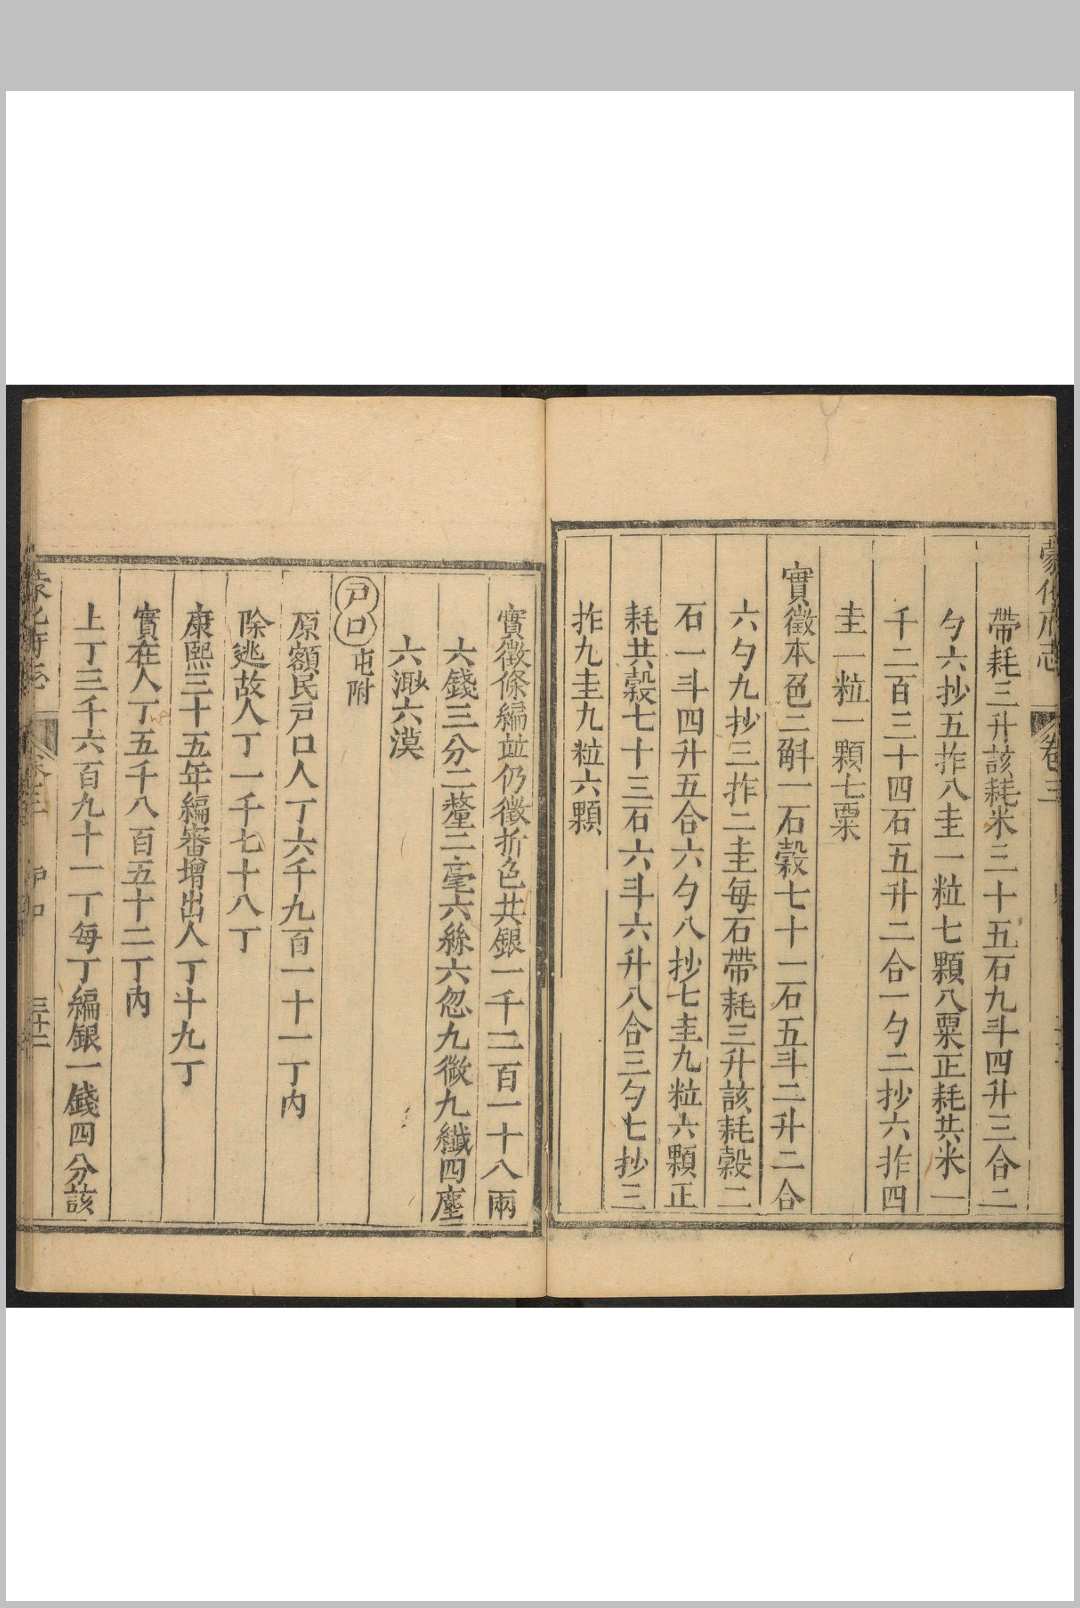 蒙化府志
卷三
帶耗三升該耗米三十五石九斗四升三合二
勺六抄五拃八圭一粒七顆八粟正耗共米一
千二百三十四石五升二合一勺二抄六拃四
圭一粒一顆七粟
實徵本色二斛一石穀七十一石五斗二升二合
六勺九抄三拃二圭每石帶耗三升該耗穀二
石一斗四升五合六勺八抄七圭九粒六顆正
耗共穀七十三石六斗六升八合三勺七抄三
拃九圭九粒六顆
實徵條編並仍徵折色共銀一千二百一十八兩
六錢三分二釐二毫六絲六忽九微九纖四塵
六渺六漠
戶口 屯附
原額民戶口人丁六千九百一十一丁內
除逃故人丁一千七十八丁
康熙三十五年編審增出人丁十九丁
實在人丁五千八百五十二丁內
上丁三千六百九十一丁每丁編銀一錢四分該